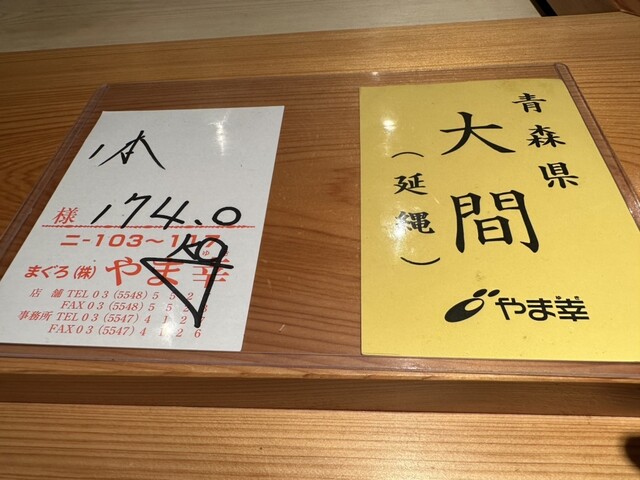 1本
様 174.0
ニ-103~117
まぐろ(株)やま幸
ゆき
店 舗 TEL 03 (5548) 5 5 2
FAX 03 (5548) 5 5 2 8
事務所 TEL 03 (5547) 4 1 2
FAX 03 (5547) 4 1 2 6
青森県
大間
(延縄)
やま幸